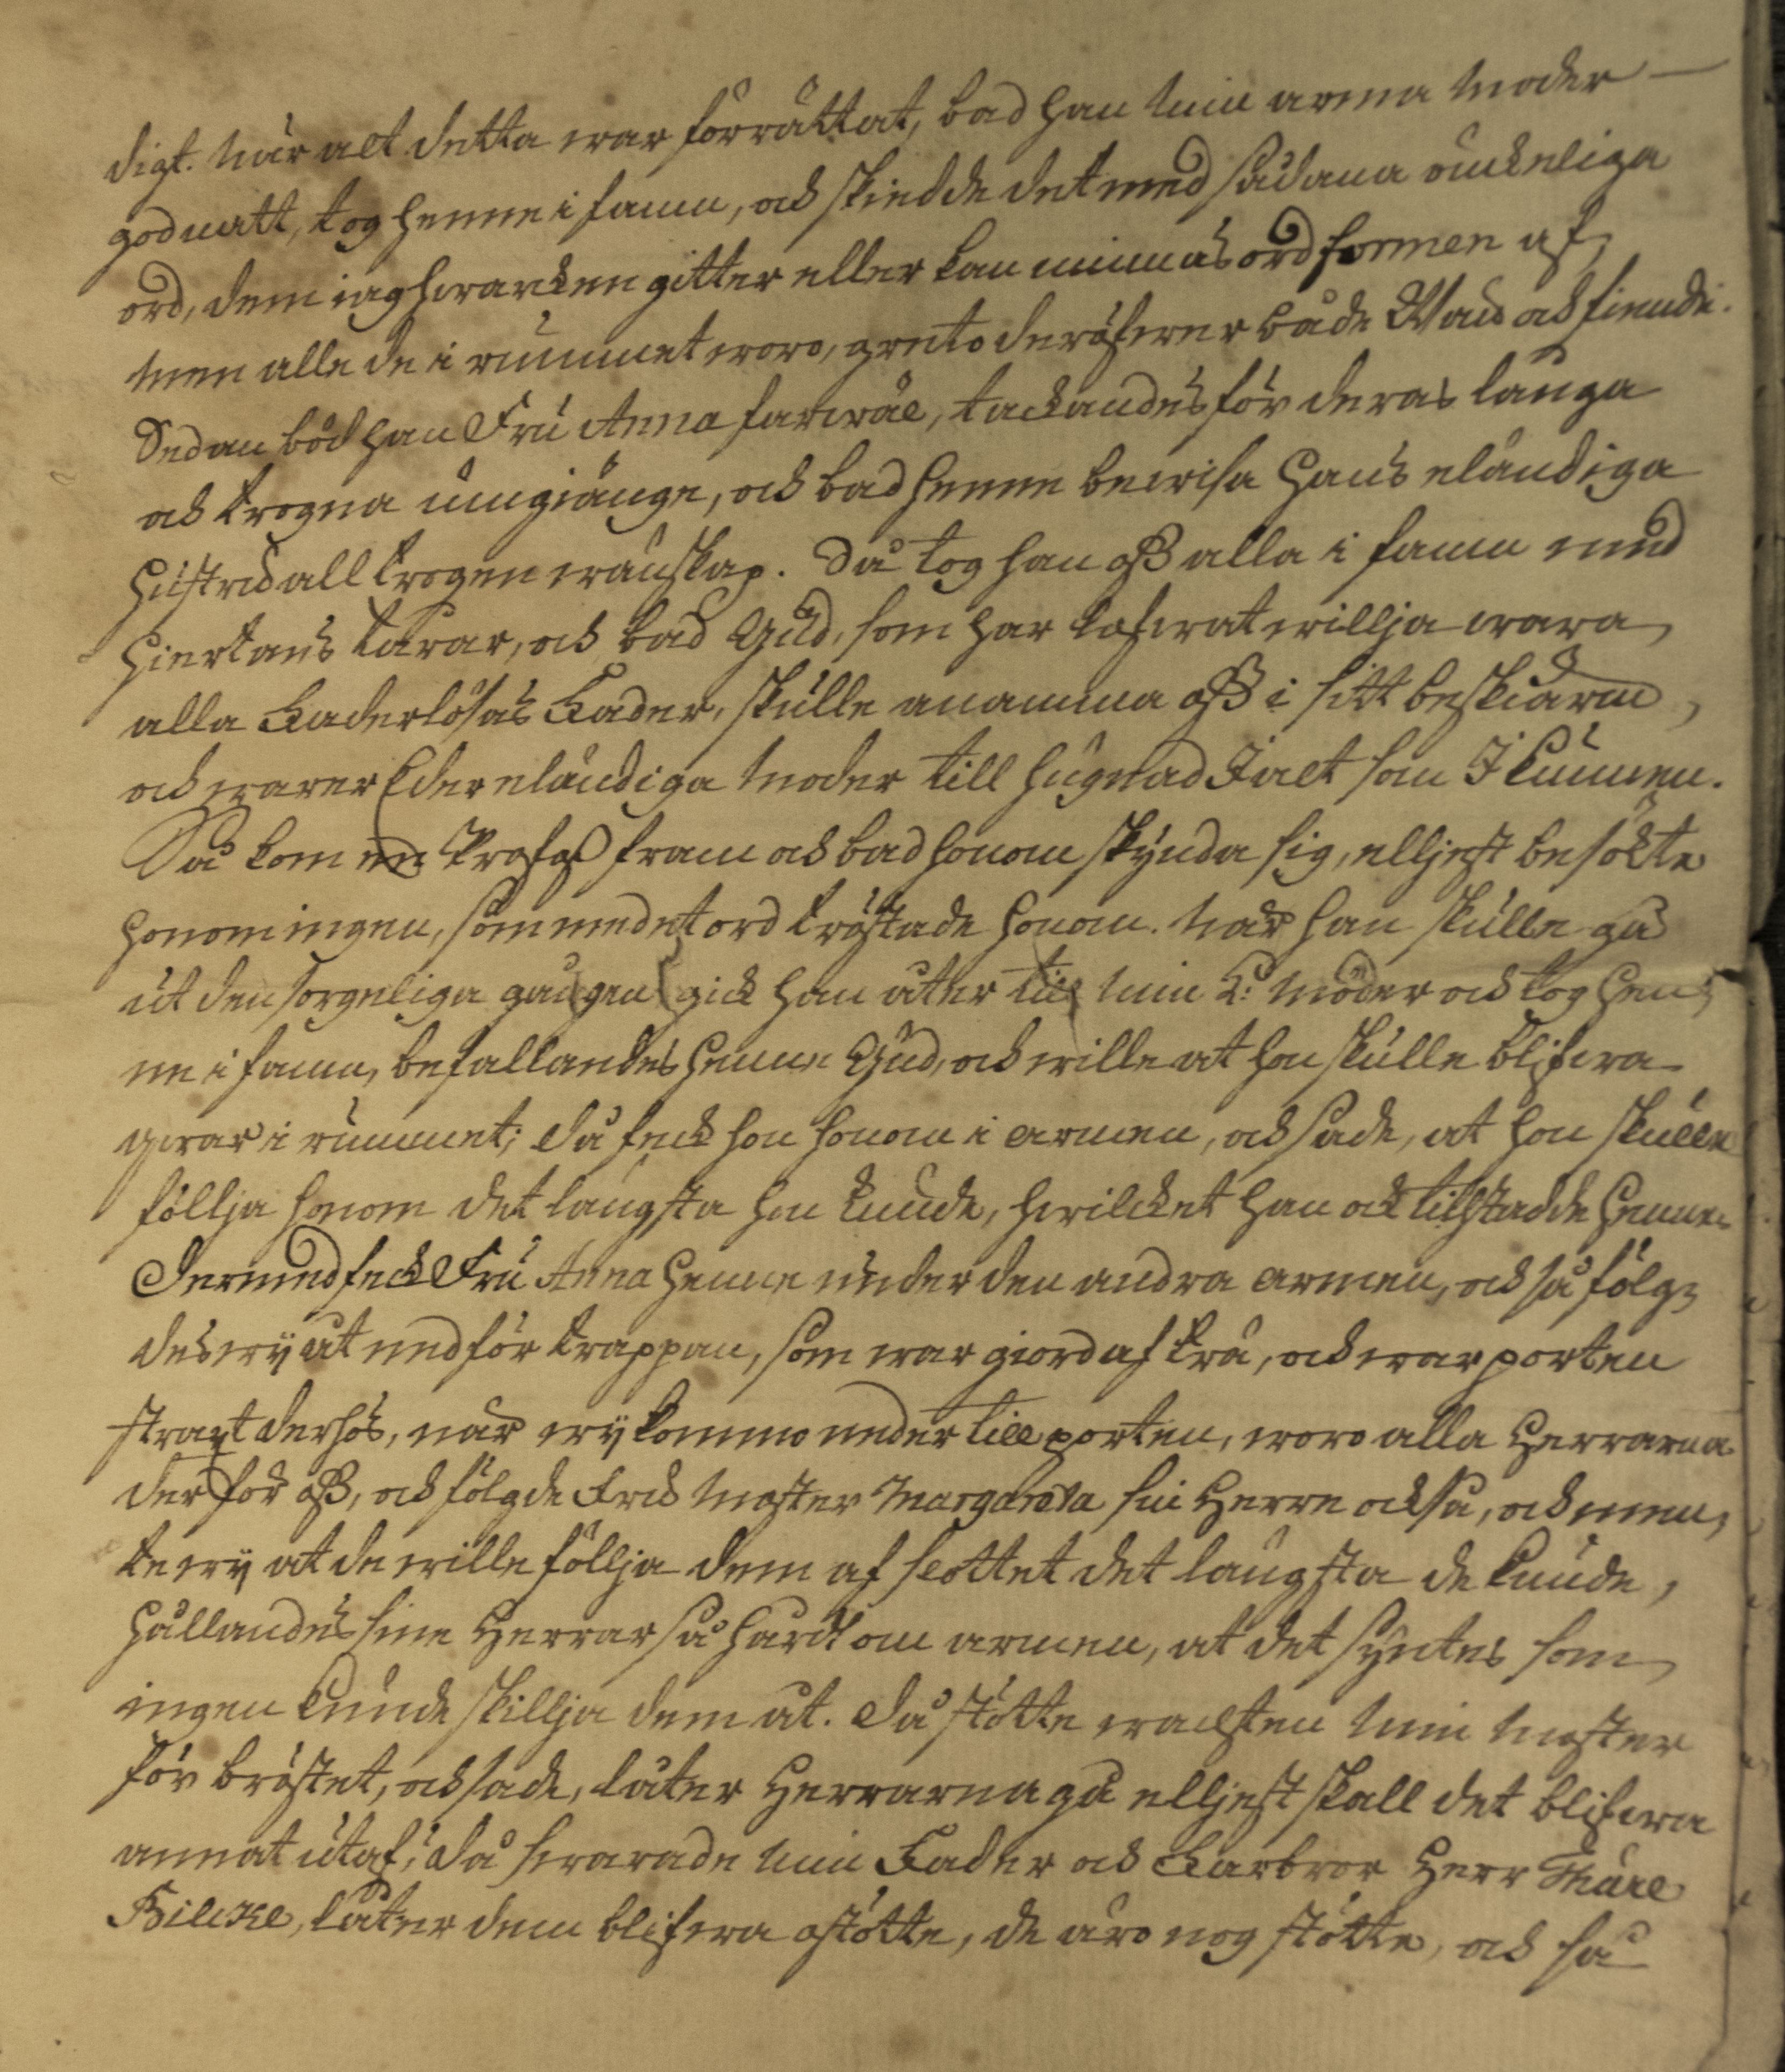 digt. När alt detta war förrättat, bad han min arma Moder
godnatt, tog henne i famn, och skiedde det med sådana ömkeliga
ord, dem iag hwarcken gitter eller kan minnas ordformen af,
men alle de i rummet woro, greto deröfwer både Wän och fiende.
Sedan böd han Fru Anna farwäl, tackandes för deras långa
och trogna umgiänge, och bad henne bewisa hans eländiga
Hustru all trogen wänskap. Då tog han oss alla i famn med
Hiertans tårar, och bad Gud, som har lofwat willja wara
alla Faderlösas Fader, skulle anamma oss i sitt beskiärm,
och warer Eder eländiga Moder till hugnad i alt som I kunnen.
Då kom en Profoss fram och bad honom skynda sig, elljest besökte
honom ingen, som med et ord tröstade honom. När han skulle gå
ut den sorgeliga gången gick han åter till min K: Moder och tog hen-
ne i famn, befallandes henne Gud, och wille at hon skulle blifwa
qwar i rummet; då feck hon honom i armen, och sade, at hon skulle
föllja honom det längsta hon kunde, hwilcket han ock tillstadde henne.
Dermed feck Fru Anna henne under den andra armen, och så följ-
des wij åt nedför trappan, som war giord af trä, och war porten
straxt derhos, när wij kommo neder till porten, woro alla Herrarna
der för oss, och fölgde Fru Moster Margareta sin Herre också, och men-
te wij at de wille föllja dem af slottet det längsta de kunde,
hållandes sine Herrar så hårdt om armen, at det syntes som
ingen kunde skillja dem åt. Då stötte wachten min Moster
för bröstet, och sade, låter Herrarna gå elljest skall det blifwa
annat utaf; då swarade min Fader och Farbror Herr Thure
Bilcke, låter dem blifwa ostötte, de äro nog stötte, och så